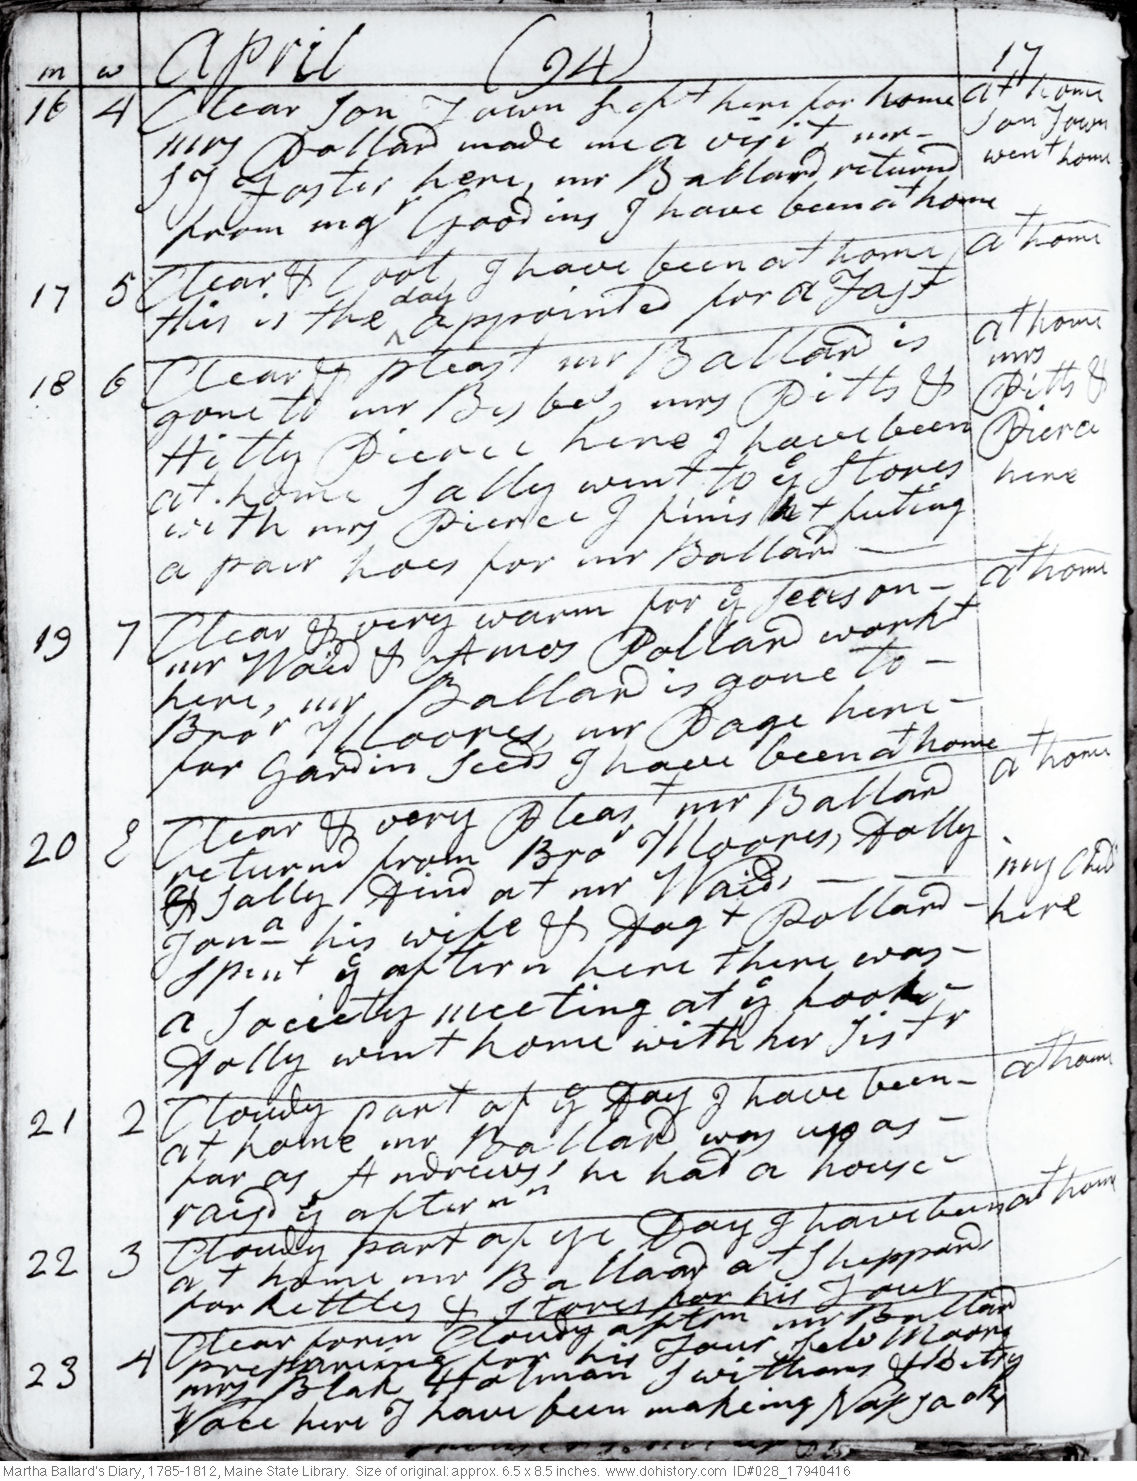 m w April (94) 17
16 4 Clear Son Town sept here for home at home
mrs Pollard made me a visit, mr Son Town
Sj Foster here, mr Ballard returnd went home
from mgr Goodins I have been at home
17 5 Clear & Cool, I have been at home at home
this is the day appointed for a Fast
18 6 Clear & pleast mr Ballard is at home
gone to mr Bisbes, mrs Pitts & mrs Pitts &
Hitty Pierce here I have been Pierce
at home Sally went to ye Stores here
with mrs Pierce I finisht futing
a pair hoes for mr Ballard
19 7 Clear & very warm for ye season at home
mr Waid & Amos Pollard workt
here, mr Ballard is gone to
Bror Moores, mr Page here
for Gardin Seeds I have been at home
20 E Clear & very Pleast mr Ballard at home
returnd from Bror Moores, Dolly
& Sally Dind at mr Waids, my Child
Jona his wife & Dagt Pollard here
spent ye aftern here there was
a Society meeting at ye hook
Dolly went home with her Sistr
21 2 Cloudy part of ye Day I have been at home
at home mr Ballard was up as
far as Andrews' he had a house
raisd ye afternn
22 3 Cloudy part of ye Day I have been at home
at home mr Ballard at Sheppard
for Kettles & Stores for his Tour
23 4 Clear foren Cloudy aftrn mr Ballard
preparing for his Tour Moors
mrs Blak Holman Swithams & Betsy
Vose here I have been making Napsacks
Martha Ballard's Diary, 1785-1812, Maine State Library. Size of original: approx. 6.5 x 8.5 inches. www.dohistory.com ID#028_17940416